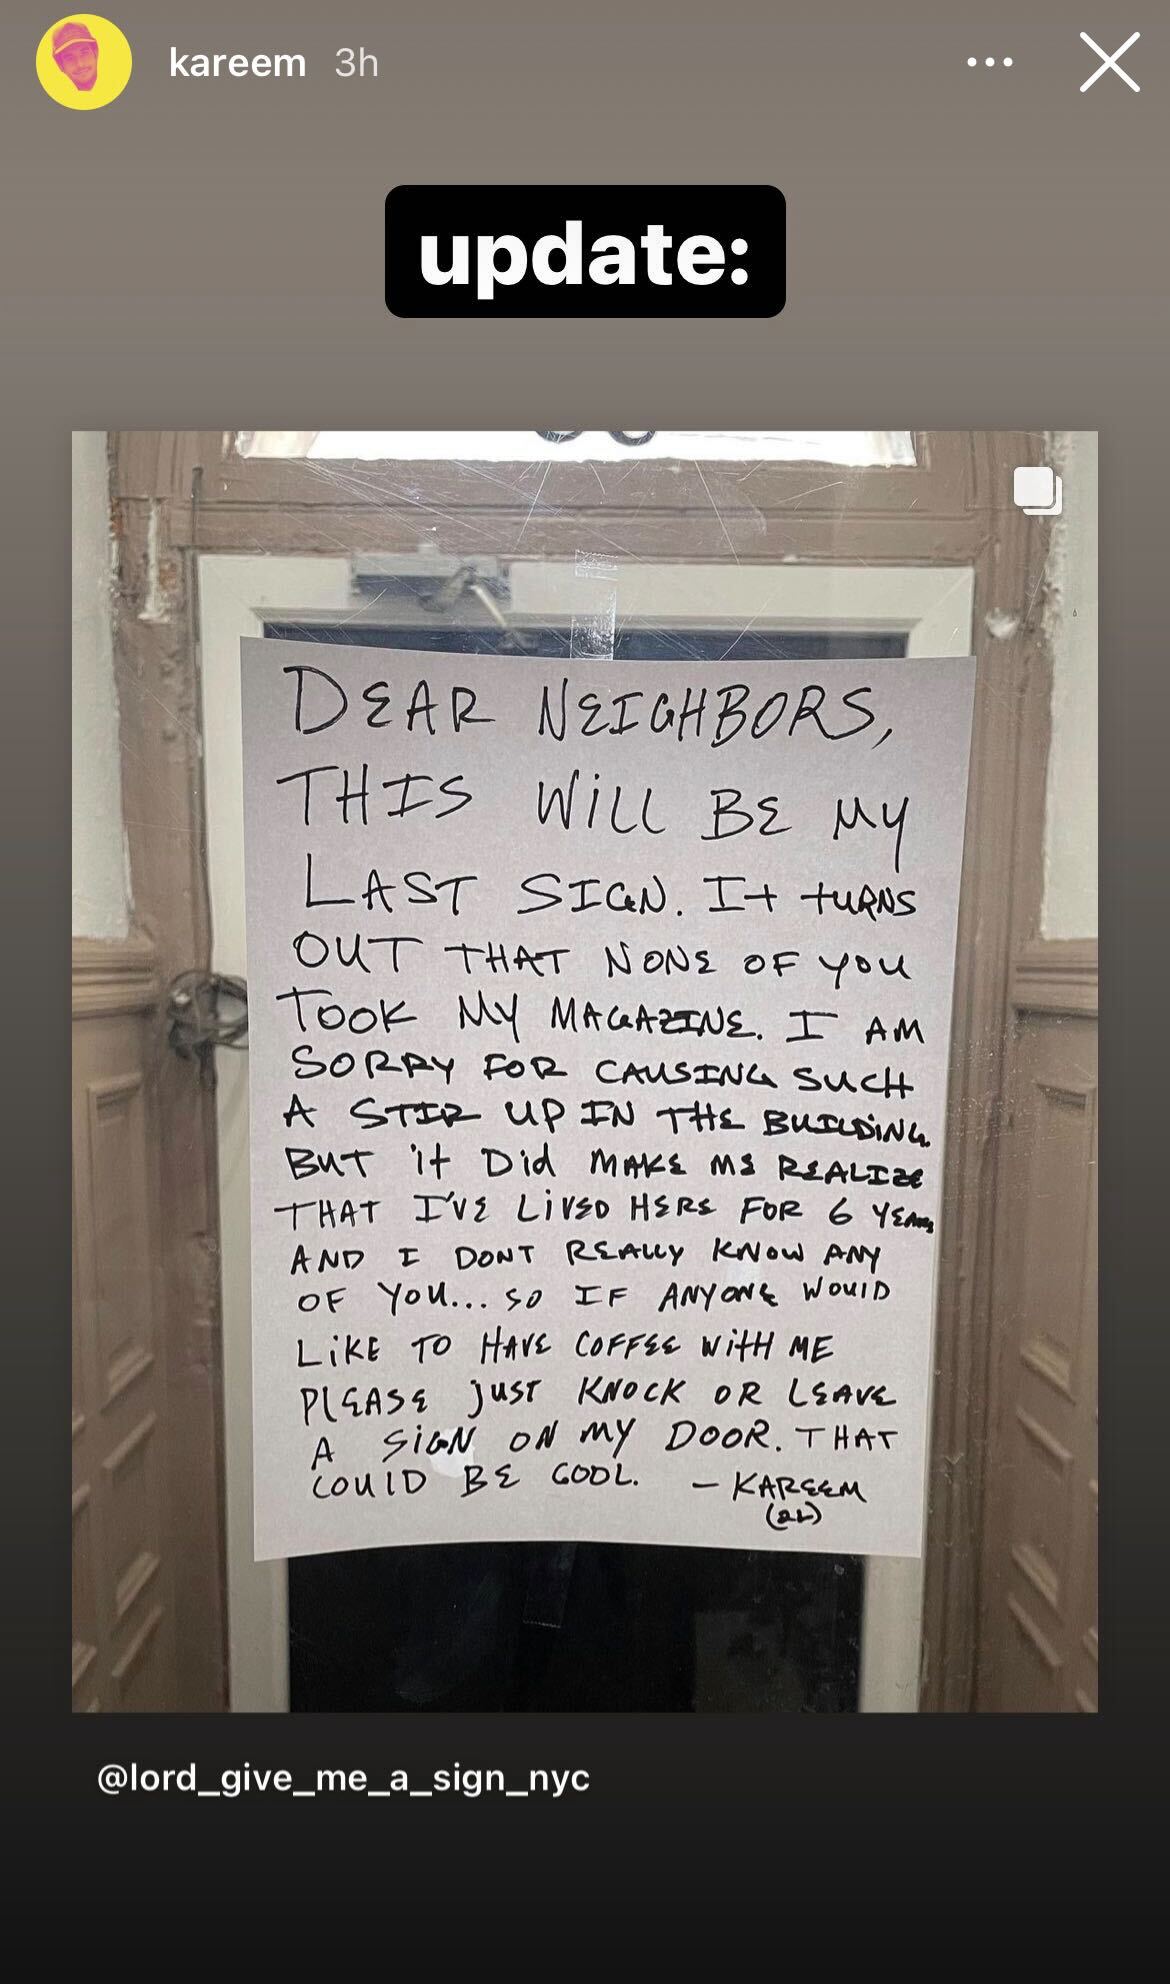 kareem 3h
update:
DEAR NEIGHBORS,
THIS WILL BE MY
LAST SIGN. IT TURNS
OUT THAT NONE OF YOU
TOOK MY MAGAZINE. I AM
SORRY FOR CAUSING SUCH
A STIR UP IN THE BUILDING.
BUT it Did MAKE ME REALIZE
THAT I'VE LIVED HERE FOR 6 YEARS
AND I DONT REALLY KNOW ANY
OF YOU... SO IF ANYONE WOULD
LIKE TO HAVE COFFEE WITH ME
PLEASE JUST KNOCK OR LEAVE
A SIGN ON MY DOOR. THAT
COULD BE COOL. – KAREEM
(2L)
@lord_give_me_a_sign_nyc